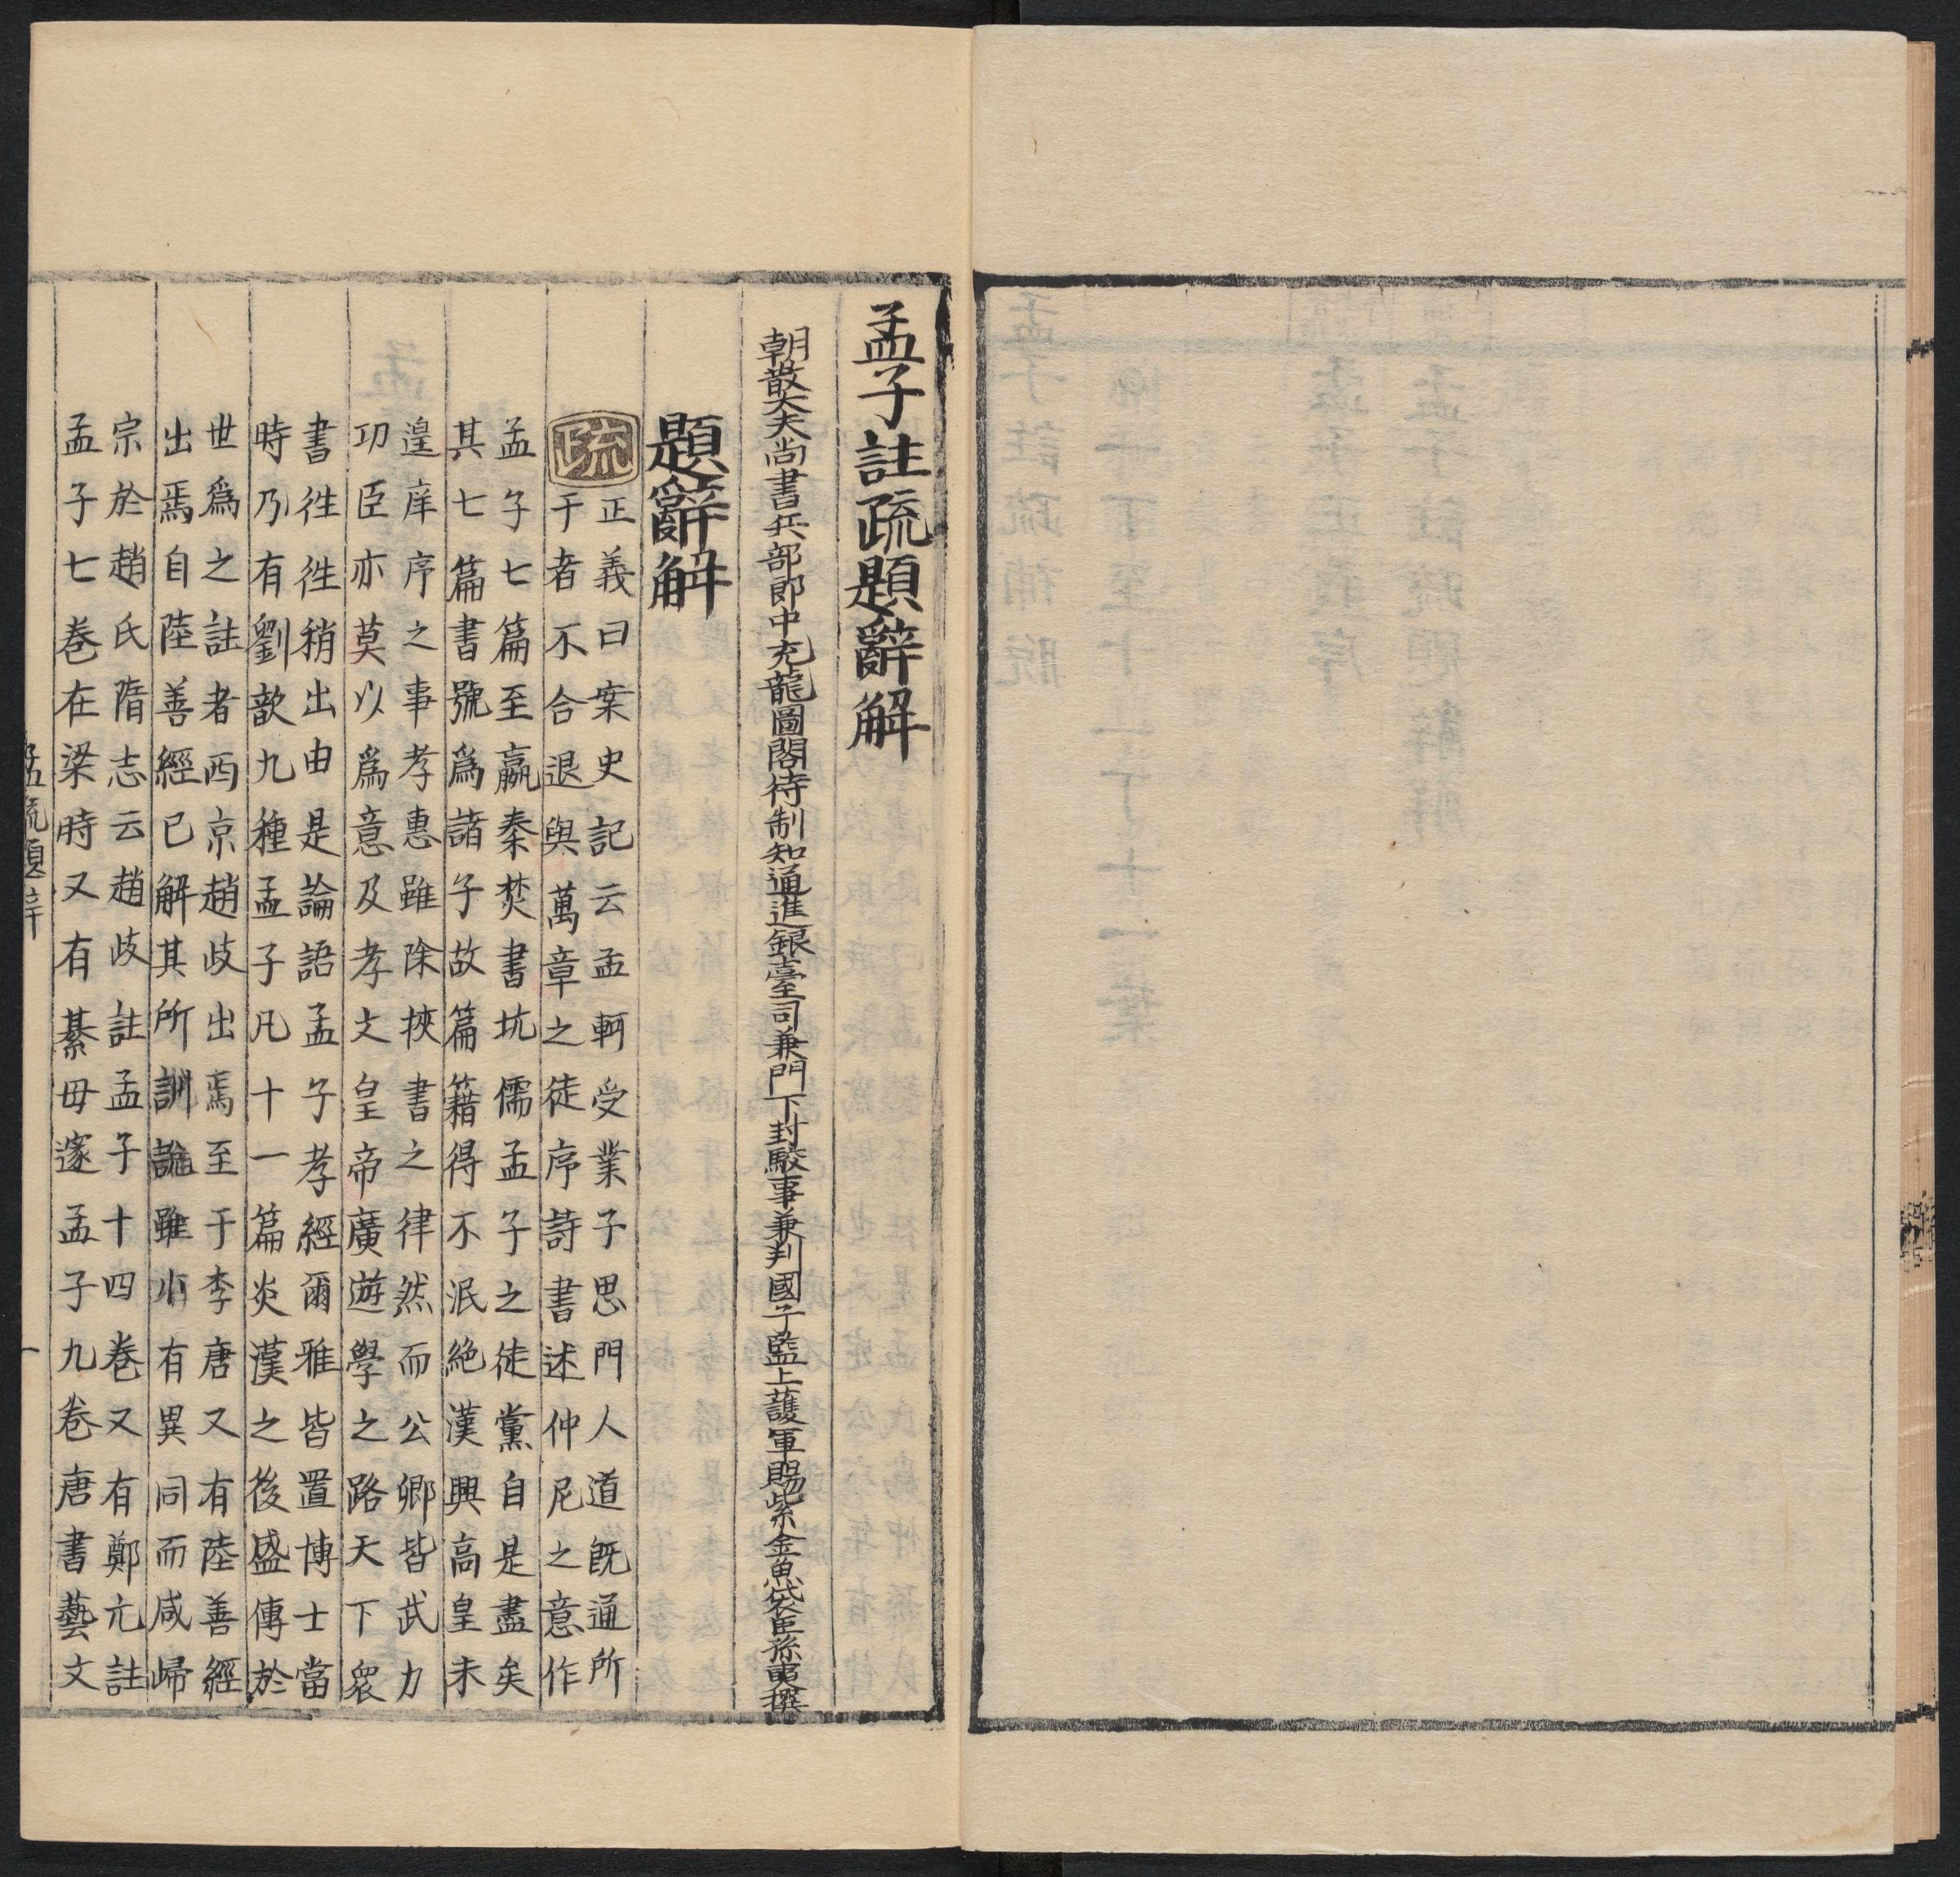 孟子註疏題辭解
朝散大夫尚書兵部郎中充龍圖閣待制知通進銀臺司兼門下封駮事兼判國子監上護軍賜紫金魚袋臣孫奭撰
題辭解
疏
正義曰案史記云孟軻受業子思門人道旣通所
干者不合退與萬章之徒序詩書述仲尼之意作
孟子七篇至嬴秦焚書坑儒孟子之徒黨自是盡矣
其七篇書號爲諸子故篇籍得不泯絶漢興高皇未
遑庠序之事孝惠雖除挾書之律然而公卿皆武力
功臣亦莫以爲意及孝文皇帝廣遊學之路天下衆
書徃徃稍出由是論語孟子孝經爾雅皆置博士當
時乃有劉歆九種孟子凡十一篇炎漢之後盛傳於
世爲之註者西京趙歧出焉至于李唐又有陸善經
出焉自陸善經已解其所訓說雖小有異同而咸歸
宗於趙氏隋志云趙歧註孟子十四卷又有鄭亢註
孟子七卷在梁時又有綦毋邃孟子九卷唐書藝文
孟疏題辛
一